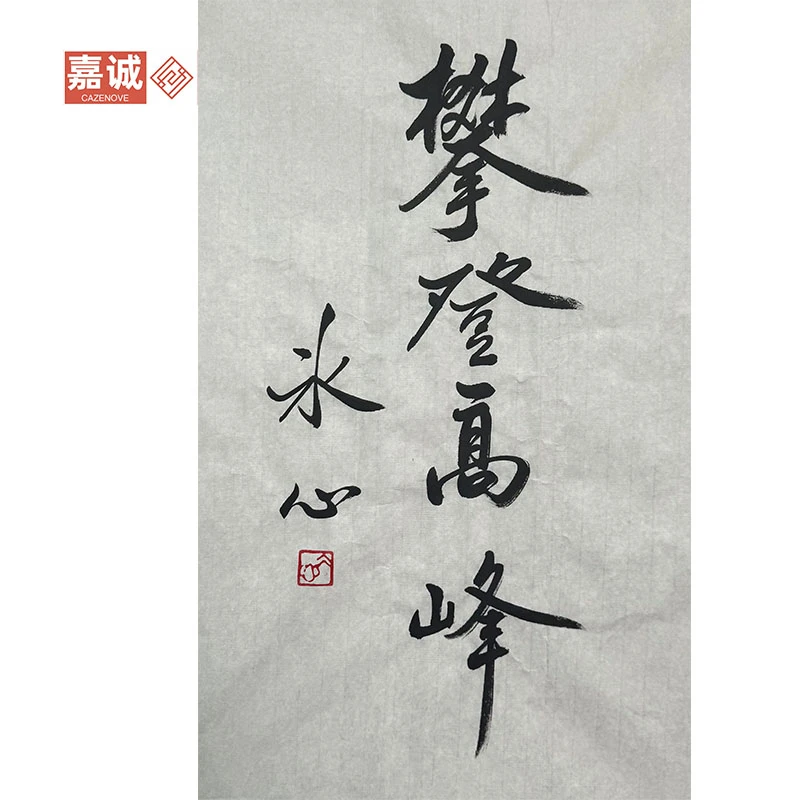 嘉诚
CAZENOVE
攀登高峰
冰心